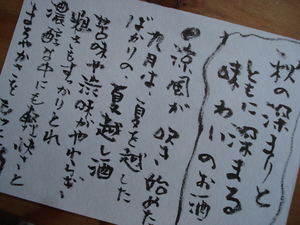 秋の深まりと
ともに深まる
味わいのお酒
涼風が吹き始めた
九月は、夏を越した
ばかりの夏越し酒
苦味や渋味がやわらぎ、
粗さもすっかりとれ
濃醇な中にも軽快さと
まろやかこと